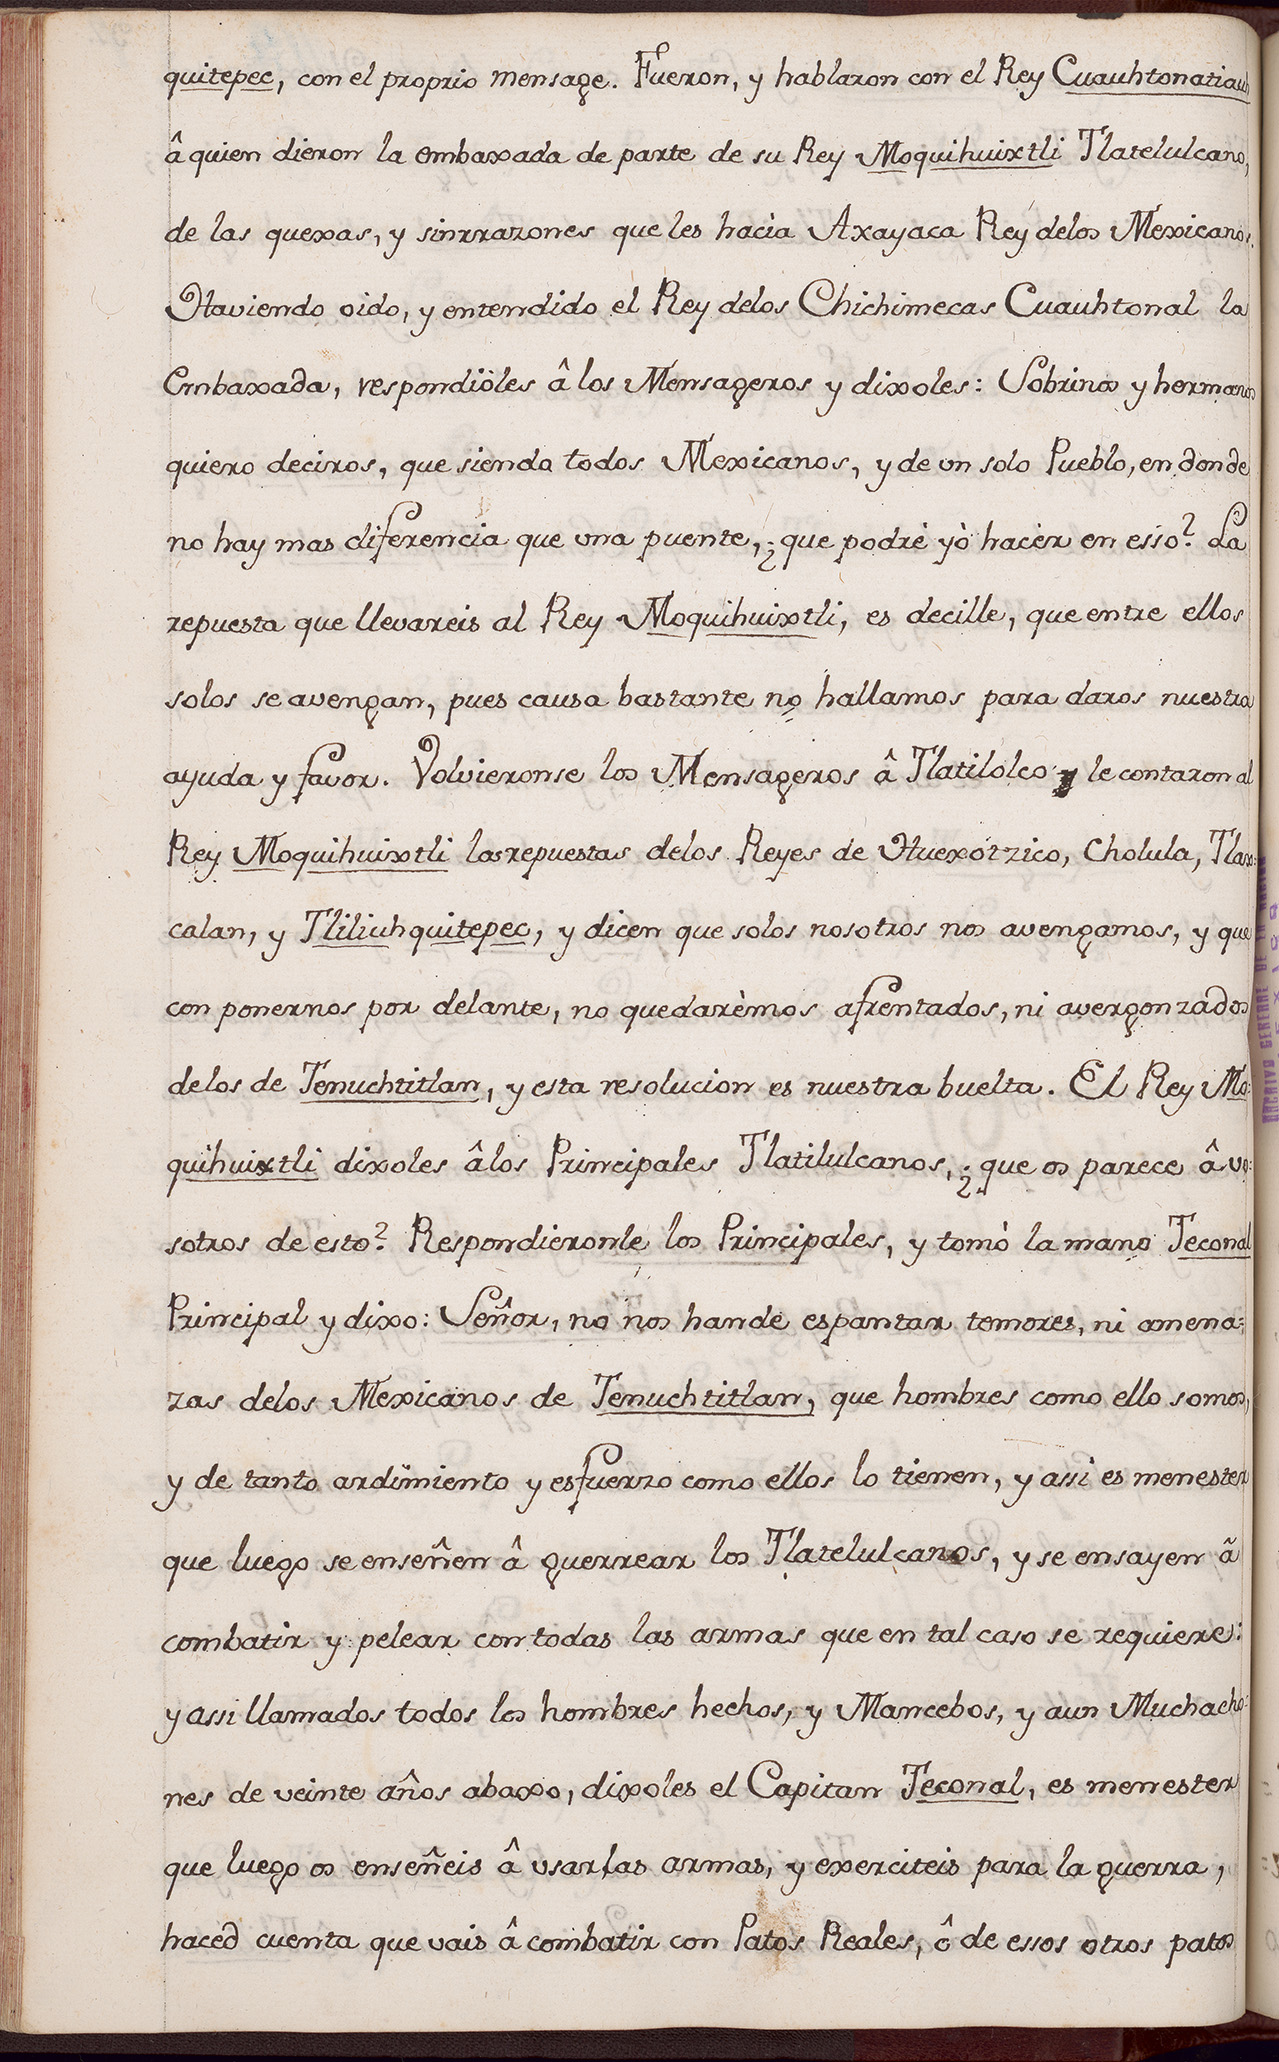 quitepec, con el proprio mensage. Fueron, y hablaron con el Rey Cuauhtonatiauh
â quien dieron la embaxada de parte de su Rey Moquihuixtli Tlatelulcano,
de las quexas, y sinrrazones que les hacia Axayaca Rey delos Mexicanos.
Haviendo oido, y entendido el Rey delos Chichimecas Cuauhtonal la
Embaxada, respondiòles â los Mensageros y dixoles: Sobrinos y hermanos
quiero deciros, que siendo todos Mexicanos, y de un solo Pueblo, en donde
no hay mas diferencia que una puente, ¿que podrè yò hacer en esso? La
repuesta que llevareis al Rey Moquihuixtli, es decille, que entre ellos
solos se avengan, pues causa bastante no hallamos para daros nuestra
ayuda y favor. Volvieronse los Mensageros â Tlatilolco y le contaron al
Rey Moquihuixtli las repuestas delos Reyes de Huexotzico, Cholula, Tlax:
calan, y Tliliuhquitepec, y dicen que solos nosotros nos avengamos, y que
con ponernos por delante, no quedarèmos afrentados, ni avergonzados
delos de Tenuchtitlan, y esta resolucion es nuestra buelta. El Rey Mo:
quihuixtli dixoles â los Principales Tlatilulcanos, ¿que os parece â vo:
sotros de esto? Respondieronle los Principales, y tomò la mano Teconal
Principal y dixo: Señor, no nos han de espantar temores, ni amena:
zas delos Mexicanos de Tenuchtitlan, que hombres como ello somos,
y de tanto ardimiento y esfuerzo como ellos lo tienen, y assi es menester
que luego se enseñen â guerrear los Tlatelulcanos, y se ensayen ã
combatir y pelear con todas las armas que en tal caso se requiere:
y assi llamados todos los hombres hechos, y Mancebos, y aun Muchacho:
nes de veinte años abaxo, dixoles el Capitan Teconal, es menester
que luego os enseñeis â usar las armas, y exerciteis para la guerra,
haced cuenta que vais â combatir con Patos Reales, ô de essos otros patos